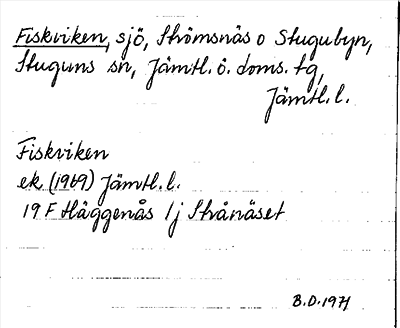 Fiskviken, sjö, Strömsnäs o Stugubyn,
Stuguns sn, Jämtl. ö. doms. tg,
Jämtl. l.
Fiskviken
ek. (1969) Jämtl. l.
19 F Häggenås 1j Strånäset
B.D. 1971